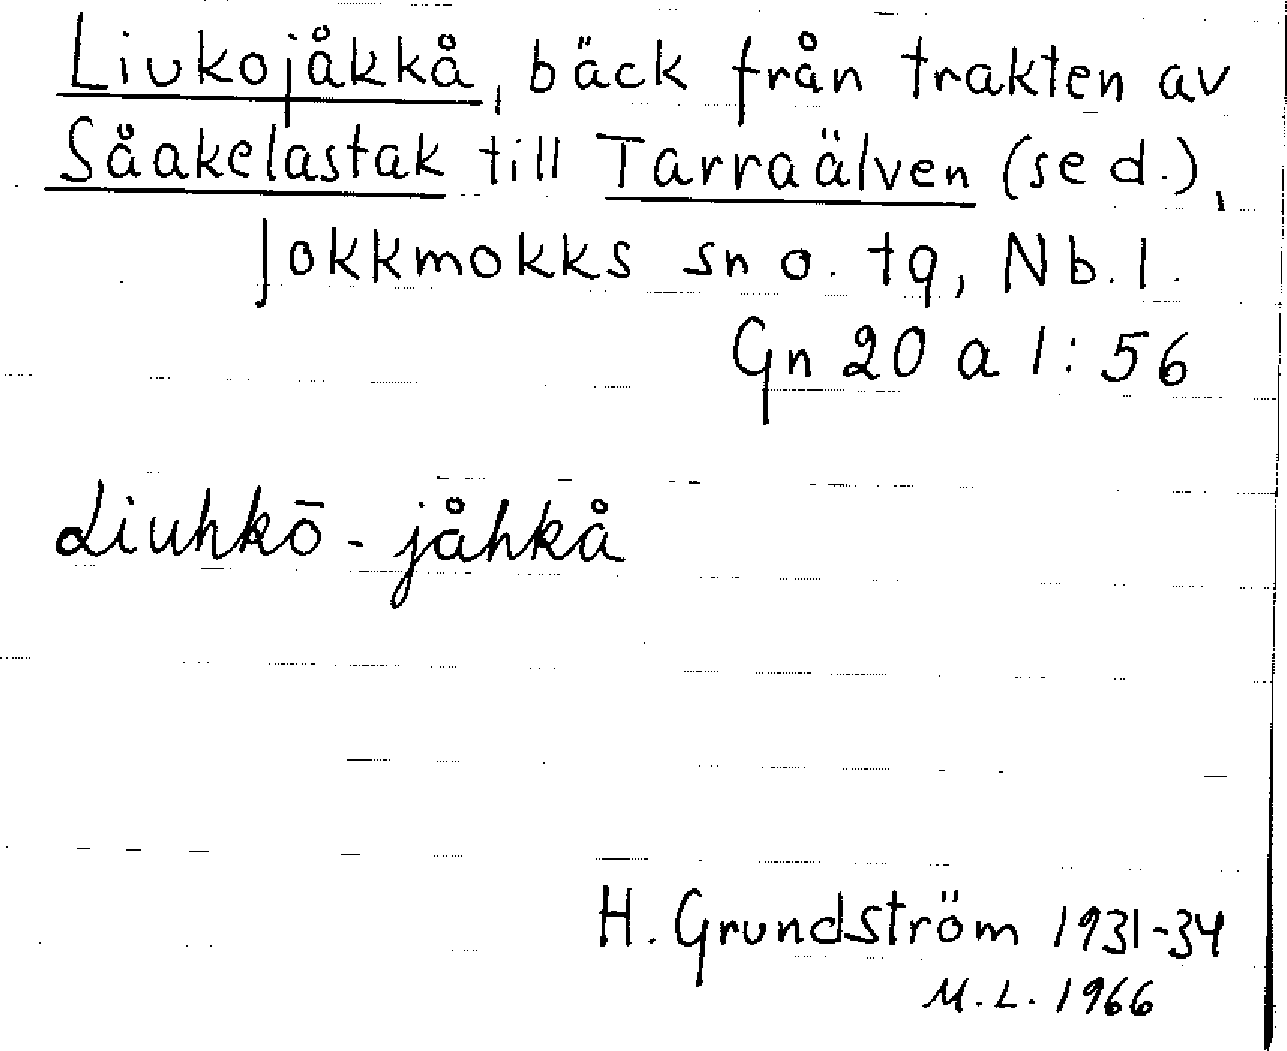 Liukojåkkå, bäck från trakten av
Såakelastak till Tarraälven (se d.),
Jokkmokks sn o. tg, Nb. l.
Gn 20 a 1:56
Liuhkō-jåhkå
H. Grundström 1931-34
M.L. 1966